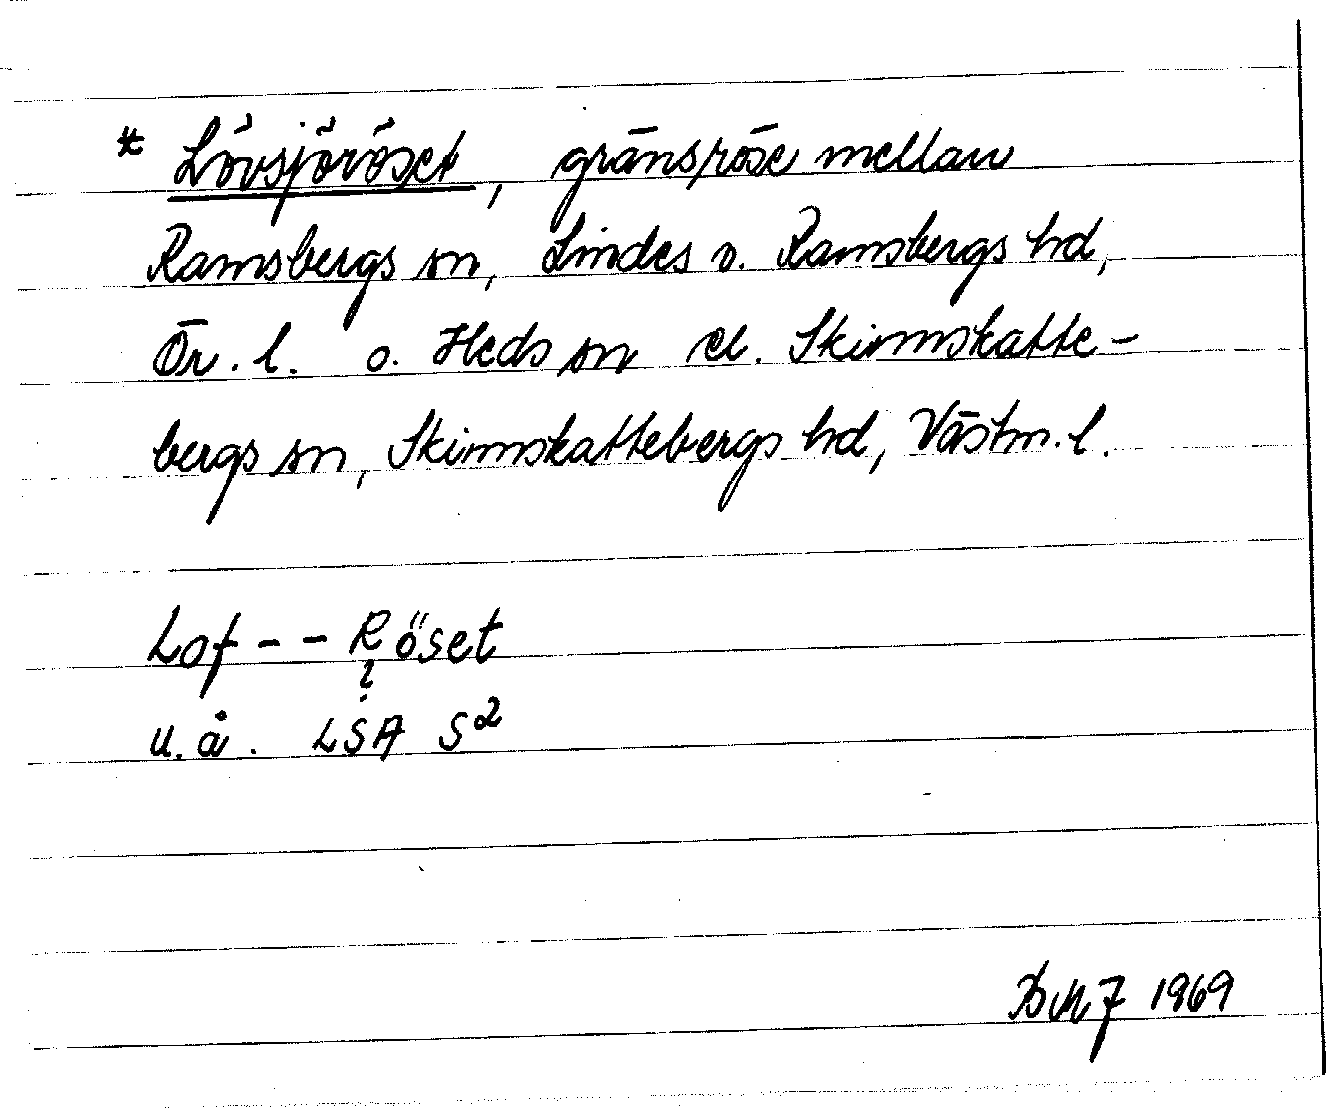 * Lövsjöröset, gränsröse mellan
Ramsbergs sn, Lindes o. Ramsbergs hd,
Ör. l. o. Heds sn el. Skinnskatte-
bergs sn, Skinnskattebergs hd, Västm. l.
Lof - - Röset
u.å. LSA S2
1969